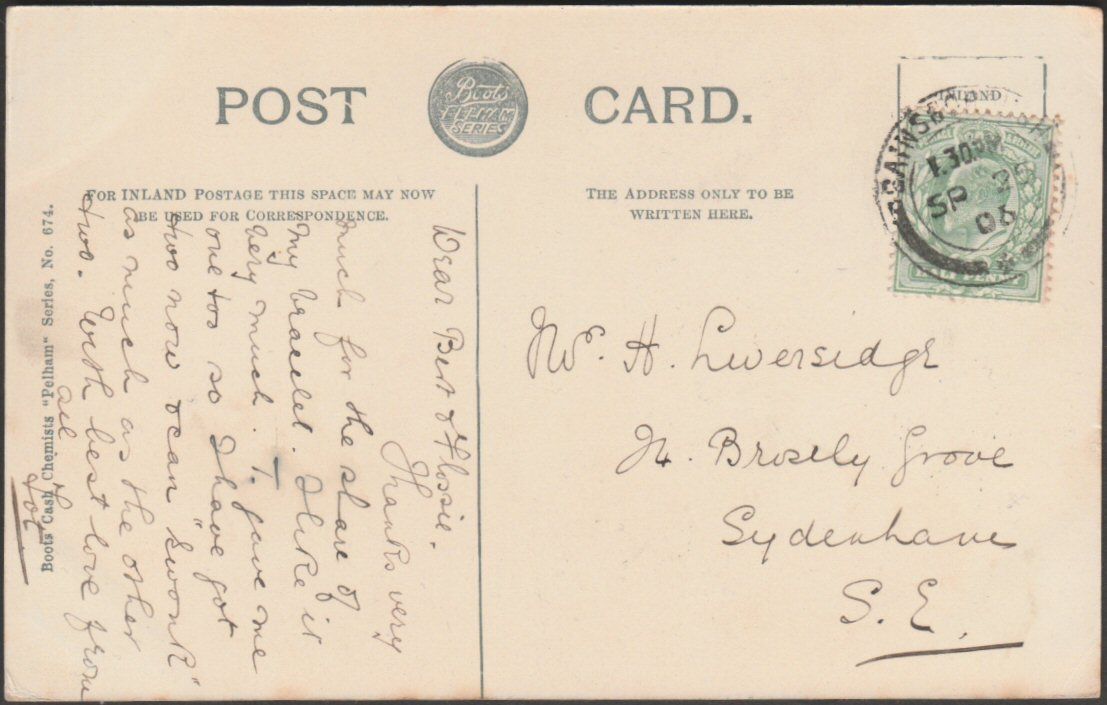 POST CARD.
Boots
PELHAM
SERIES
INLAND
FOR INLAND POSTAGE THIS SPACE MAY NOW
BE USED FOR CORRESPONDENCE.
THE ADDRESS ONLY TO BE
WRITTEN HERE.
1.30PM
SP
06
HALF PENNY
Dear Bert & Flossie.
Thanks very
much for the share of
my bracelet. I like it
very much. T. gave me
one too so I have got
two now & can "swank"
as much as the other
two. With best love from
all
Tot
Boots Cash Chemists "Pelham" Series, No. 674.
Mr. H. Liversidge
Brosely Grove
Sydenham
S. E.